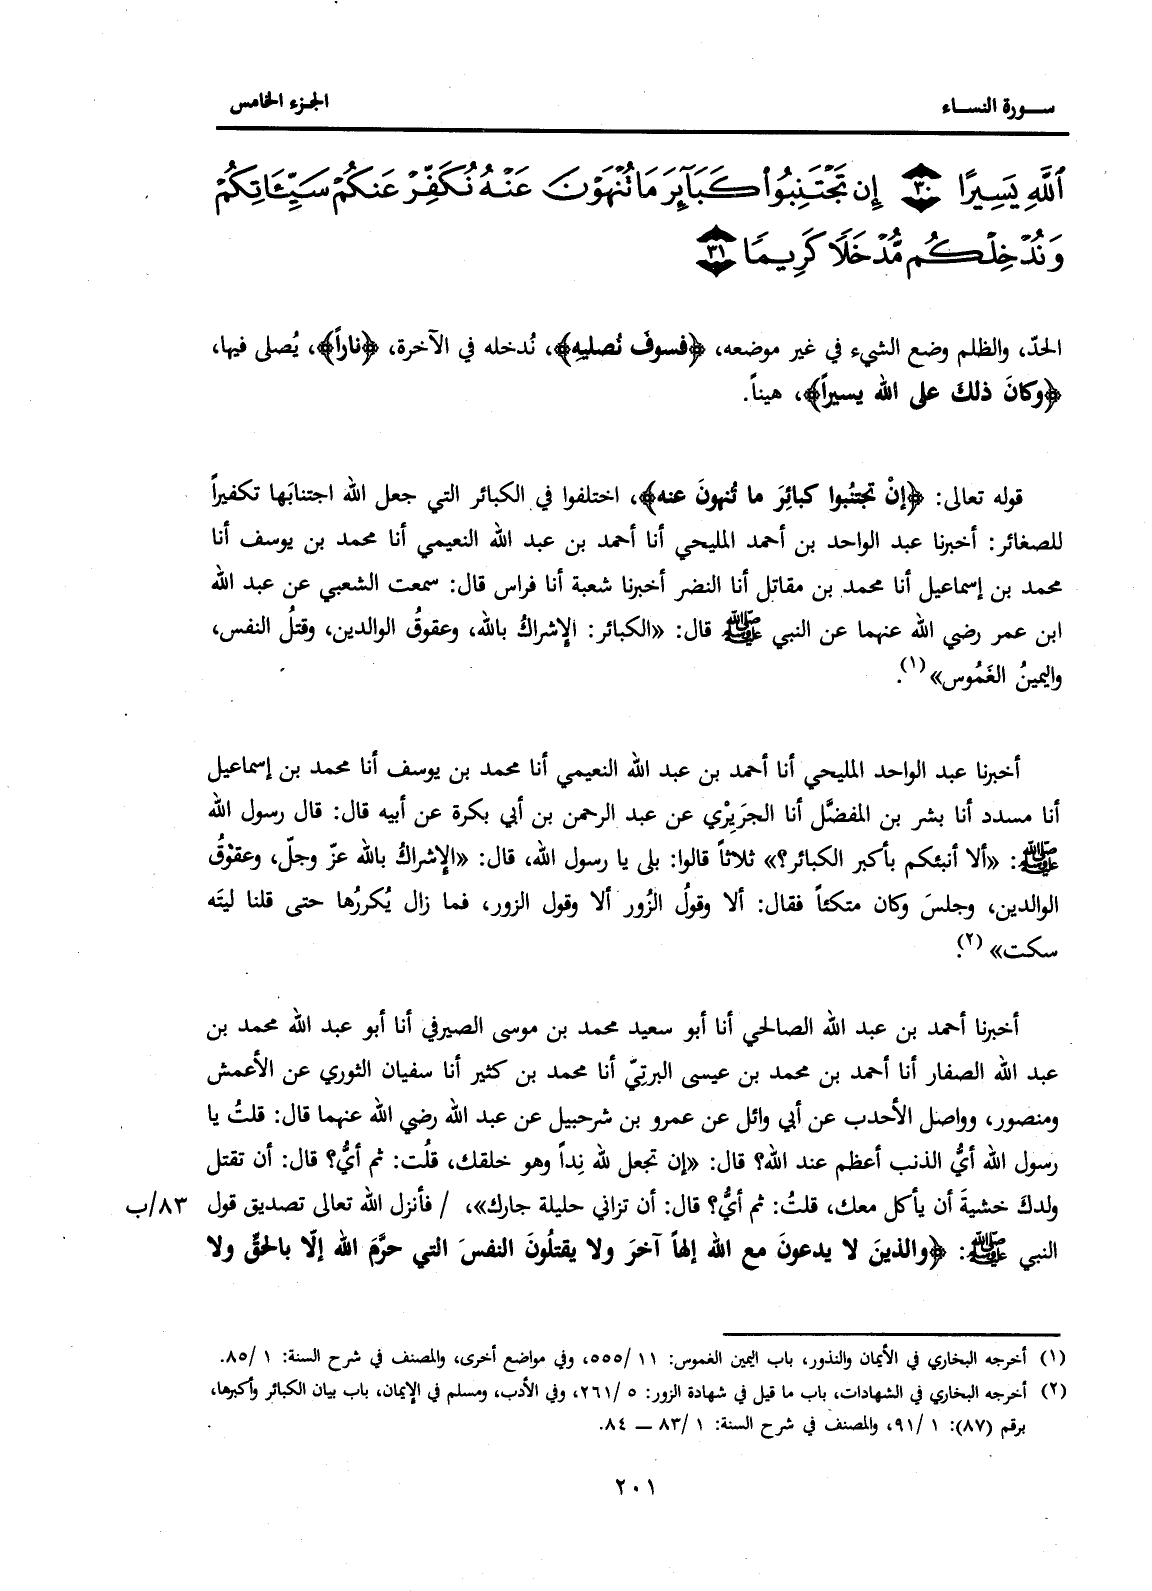 سـورة النسـاء
الجزء الخامس
ٱللَّهِ يَسِيرًا ٣٠ إِن تَجْتَنِبُوا۟ كَبَآئِرَ مَا تُنْهَوْنَ عَنْهُ نُكَفِّرْ عَنكُمْ سَيِّـَٔاتِكُمْ
وَنُدْخِلْكُم مُّدْخَلًا كَرِيمًا ٣١
الحدّ، والظلم وضع الشيء في غير موضعه، ﴿فسوفَ نُصليهِ﴾، نُدخله في الآخرة، ﴿ناراً﴾، يُصلى فيها،
﴿وكانَ ذلكَ على الله يسيراً﴾، هيناً.
قوله تعالى: ﴿إنْ تجتنُبوا كبائِرَ ما تُنهونَ عنه﴾، اختلفوا في الكبائر التي جعل الله اجتنابَها تكفيراً
للصغائر: أخبرنا عبد الواحد بن أحمد المليحي أنا أحمد بن عبد الله النعيمي أنا محمد بن يوسف أنا
محمد بن إسماعيل أنا محمد بن مقاتل أنا النضر أخبرنا شعبة أنا فراس قال: سمعت الشعبي عن عبد الله
ابن عمر رضي الله عنهما عن النبي ﷺ قال: «الكبائر: الإشراكُ بالله، وعقوقُ الوالدين، وقتلُ النفس،
واليمينُ الغَمُوس»(١).
أخبرنا عبد الواحد المليحي أنا أحمد بن عبد الله النعيمي أنا محمد بن يوسف أنا محمد بن إسماعيل
أنا مسدد أنا بشر بن المفضَّل أنا الجرَيِرْي عن عبد الرحمن بن أبي بكرة عن أبيه قال: قال رسول الله
ﷺ: «ألا أنبئكم بأكبر الكبائر؟» ثلاثاً قالوا: بلى يا رسول الله، قال: «الإشراكُ بالله عزّ وجلّ، وعقوْقُ
الوالدين، وجلسَ وكان متكئاً فقال: ألا وقولُ الزُور ألا وقول الزور، فما زال يُكررُها حتى قلنا ليتَه
سكت»(٢).
أخبرنا أحمد بن عبد الله الصالحي أنا أبو سعيد محمد بن موسى الصيرفي أنا أبو عبد الله محمد بن
عبد الله الصفار أنا أحمد بن محمد بن عيسى البرتيّ أنا محمد بن كثير أنا سفيان الثوري عن الأعمش
ومنصور، وواصل الأحدب عن أبي وائل عن عمرو بن شرحبيل عن عبد الله رضي الله عنهما قال: قلتُ يا
رسول الله أيُّ الذنب أعظم عند الله؟ قال: «إن تجعل لله نِداً وهو خلقك، قلُت: ثم أيُّ؟ قال: أن تقتل
ولدكَ خشيةَ أن يأكل معك، قلتُ: ثم أيُّ؟ قال: أن تزاني حليلة جارك»، / فأنزل الله تعالى تصديق قول ٨٣/ب
النبي ﷺ: ﴿والذينَ لا يدعونَ مع الله إلهاً آخرَ ولا يقتلُونَ النفسَ التي حرَّمَ الله إلّا بالحقِّ ولا
(١) أخرجه البخاري في الأيمان والنذور، باب اليمين الغموس: ١١ /٥٥٥، وفي مواضع أخرى، والمصنف في شرح السنة: ١ /٨٥.
(٢) أخرجه البخاري في الشهادات، باب ما قيل في شهادة الزور: ٥ /٢٦١، وفي الأدب، ومسلم في الإيمان، باب بيان الكبائر وأكبرها،
برقم (٨٧): ١ /٩١، والمصنف في شرح السنة: ١ /٨٣ ــ ٨٤.
٢٠١